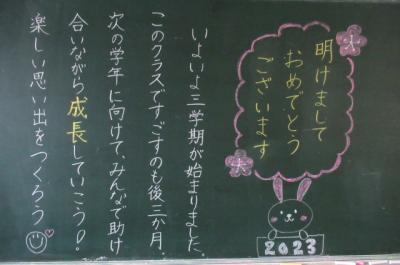 明けまして
おめでとう
ございます
2023
いよいよ三学期が始まりました。
このクラスですごすのも後三か月。
次の学年に向けて、みんなで助け
合いながら成長していこう!!
楽しい思い出をつくろう